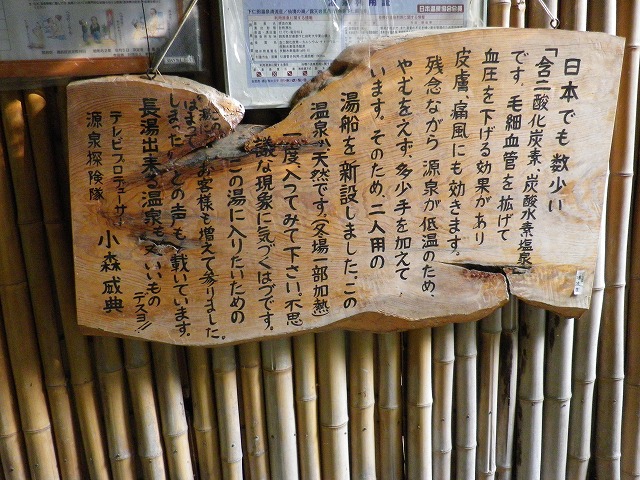 日本でも数少い
「含二酸化炭素、炭酸水素塩泉」
です。毛細血管を拡げて
血圧を下げる効果があり
皮膚、痛風にも効きます。
残念ながら 源泉が低温のため、
やむをえず、多少手を加えて
います。そのため、二人用の
湯船を新設しました。この
温泉が天然です。(冬場一部加熱)
一度入ってみて下さい。不思
議な現象に気づくハズです。
この湯に入りたいための
お客様も増えて参りました。
はまって
しまった との声も戴いています。
長湯出来る温泉も又、いいもの
デスヨ!!
テレビプロデューサー
源泉探険隊 小森威典
日本温泉協会会員